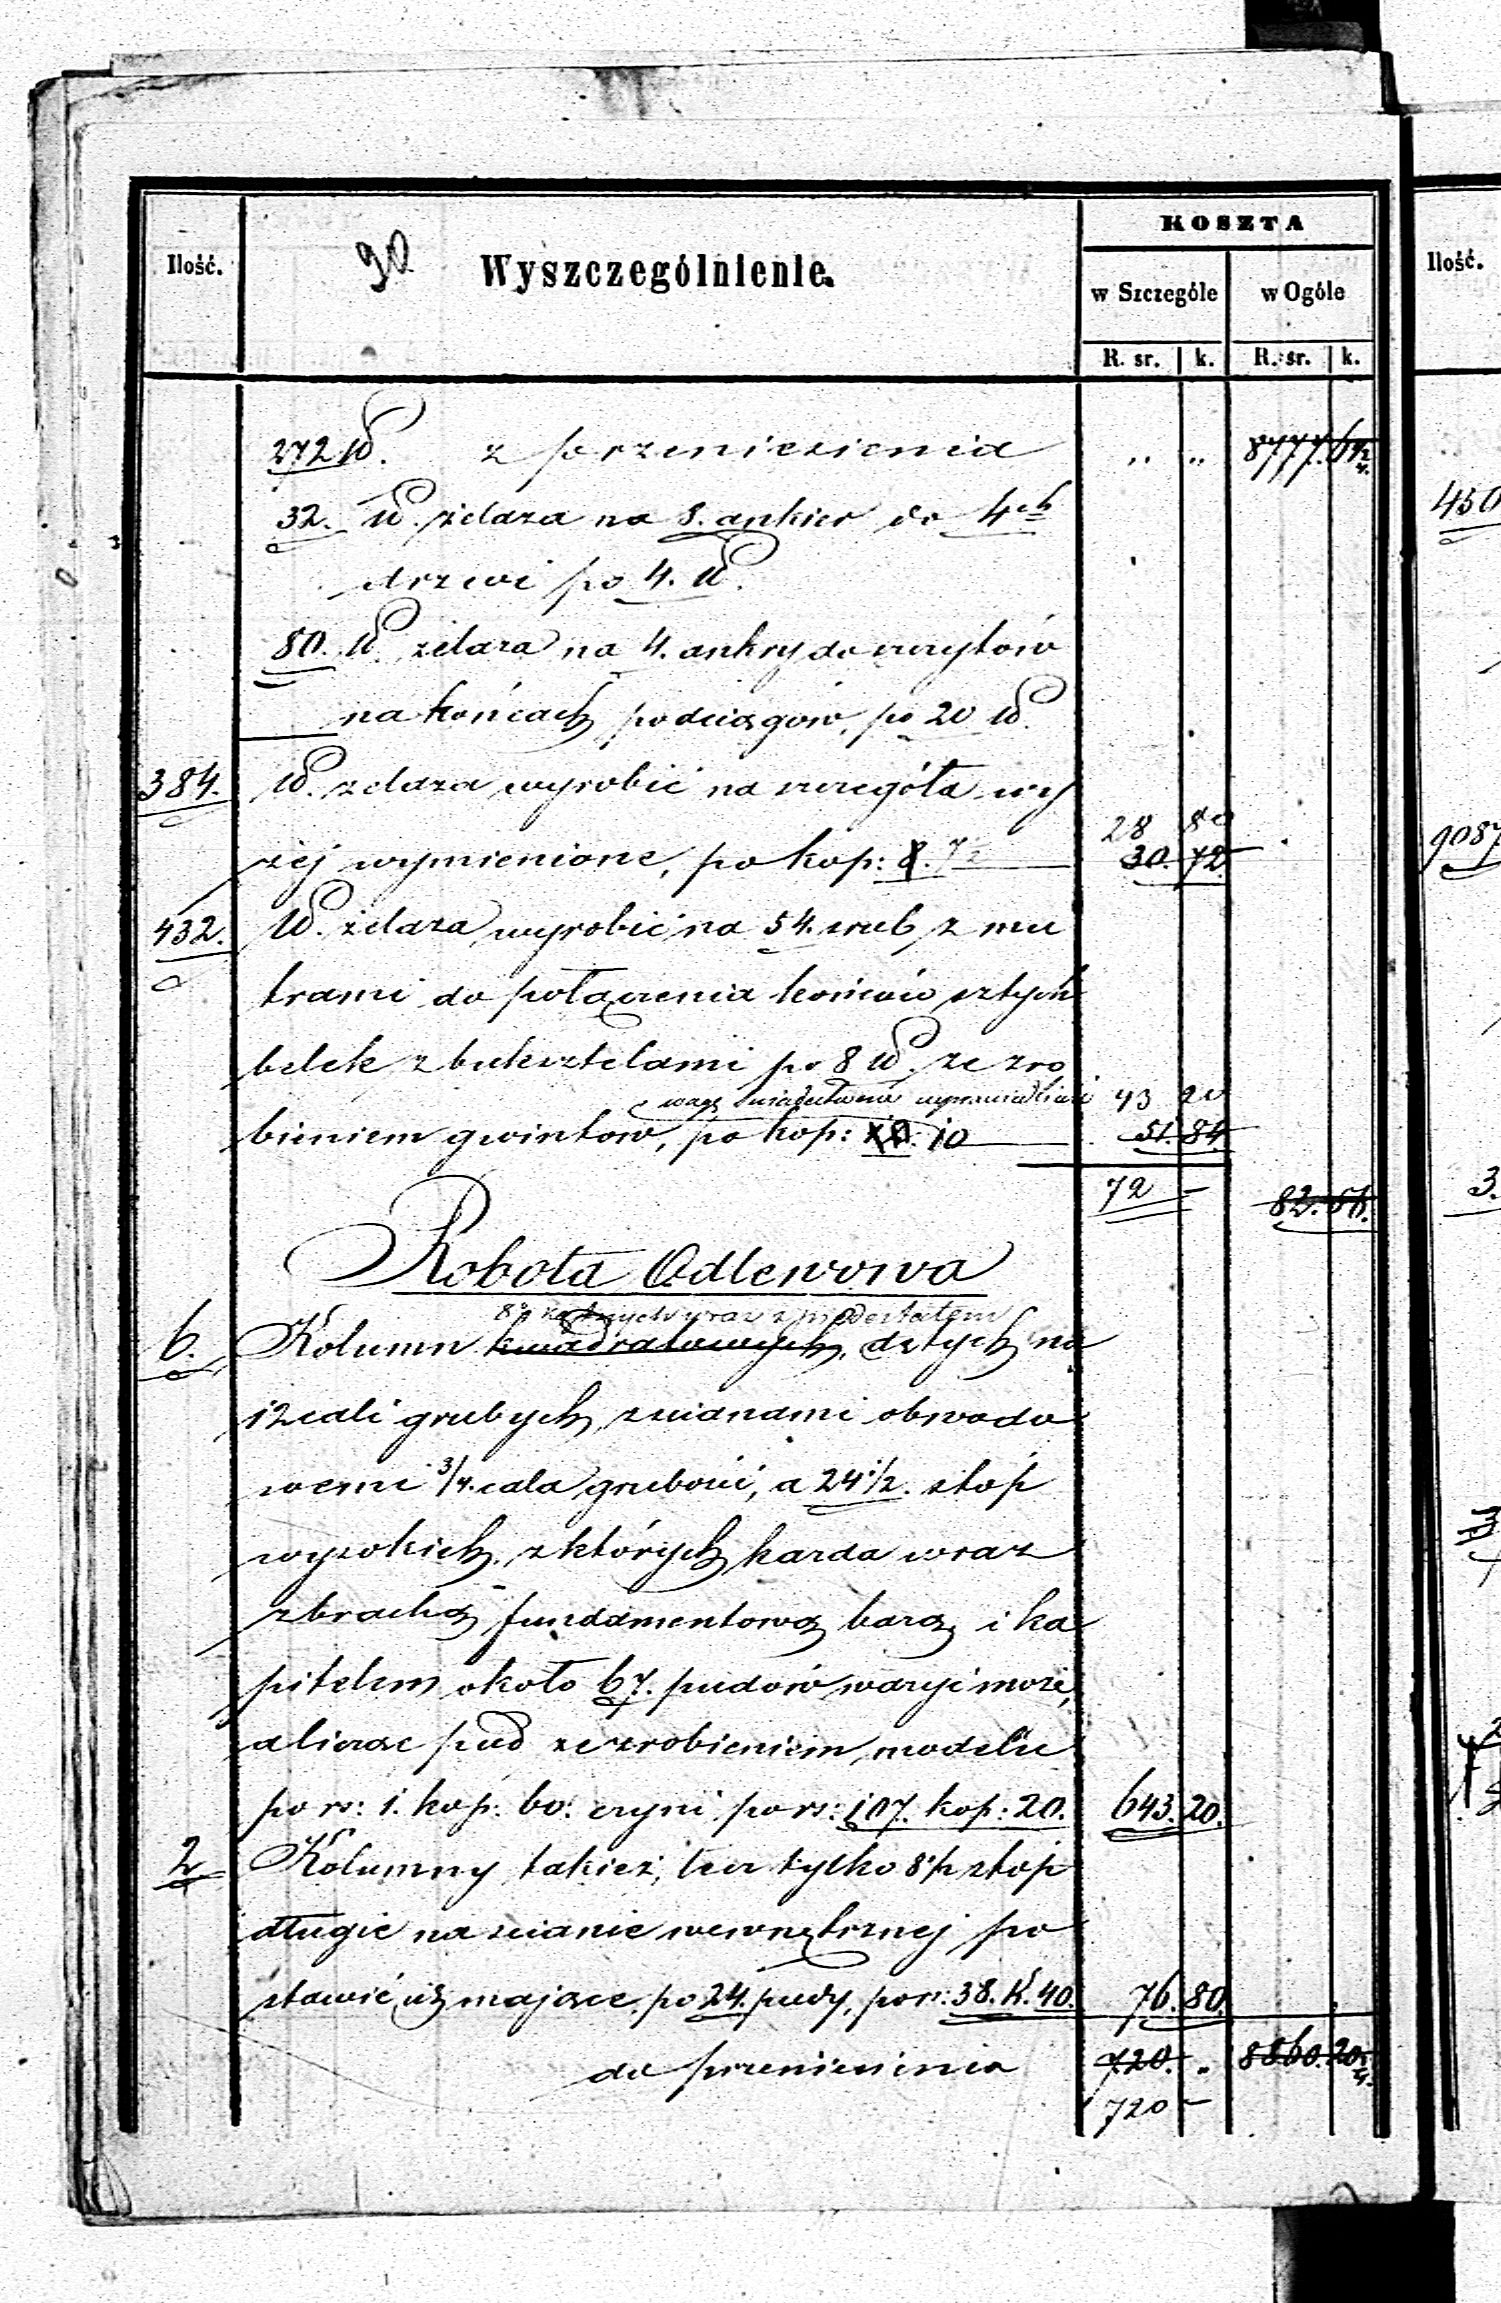 KOSZTA
Ilość. 90 Wyszczególnienie. w Szczególe w Ogóle
R. sr. k. R. sr. k.
272 ℔. z przeniesienia „ „ 8777. 64 2/4.
32. ℔. żelaza na 8. ankier do 4ch
drzwi po 4. ℔.
80. ℔. żelaza na 4. ankry do szczytów
na końcach podciągów, po 20 ℔.
384. ℔. żelaza wyrobić na szczegóła wy
28 80
żej wymienione, po kop: 8. 7½ 30. 72.
432. ℔. żelaza wyrobić na 54. śrub z mu
trami do połączenia końców sztych
belek z buksztelami po 8 ℔. ze zro
wagę świadectwem usprawiedliwić 43 20
bieniem gwintów, po kop: 12. 10 51. 84.
72 — 82. 56.
Robota Odlewowa
wraz z piedestałem
6. Kolumn kwadratowych, dętych na
12 cali grubych, ścianami obwodo
wemi 3/4. cala grubości, a 24 1/2. stóp
wysokich, z których każda wraz
z brachą fundamentową bazą i ka
pitelem około 67. pudów ważyć może,
a licząc pud ze zrobieniem modelu
po rs: 1. kop: 60: czyni po rs: 107. kop: 20. 643. 20.
2 Kolumny takież, lecz tylko 8 1/2 stóp
długie na ścianie wewnętrznej po
stawić się mające, po 24. pudy, po rs: 38. k. 40. 76. 80.
do przeniesienia 720. „ 8860. 20 2/4.
720 —
Ilość.
450
9087
3.